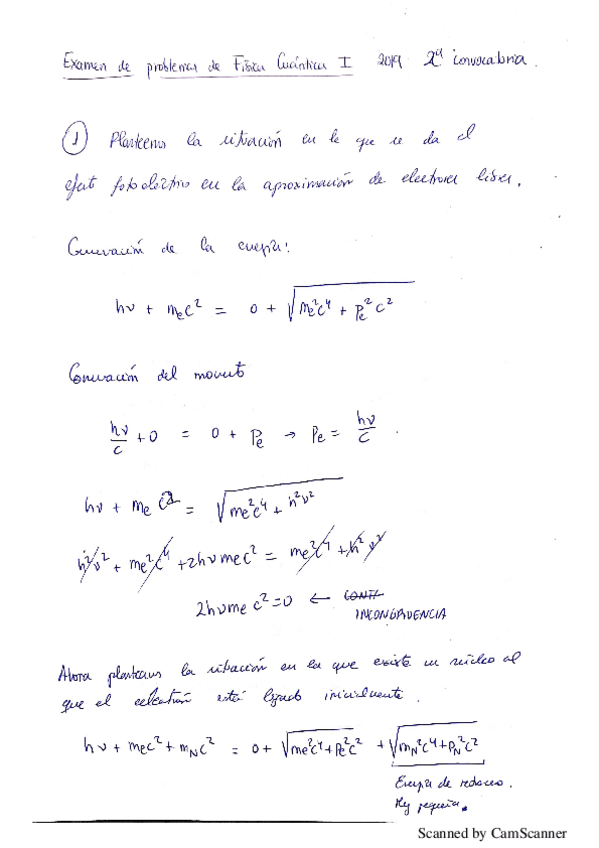 Examen de problemas de Física Cuántica I 2019 2ª convocatoria.
① Planteemos la situación en la que se da el
efecto fotoeléctrico en la aproximación de electrones libres.
Conservación de la energía:
hν + mₑc² = 0 + √(mₑ²c⁴ + Pₑ²c²)
Conservación del momento
hν/c + 0 = 0 + Pₑ → Pₑ = hν/c.
hν + mₑc² = √(mₑ²c⁴ + h²ν²)
h²ν² + mₑ²c⁴ + 2hνmₑc² = mₑ²c⁴ + h²ν²
2hνmₑc² = 0 ← CONTR INCONGRUENCIA
Ahora planteamos la situación en la que existe un núcleo al
que el electrón está ligado inicialmente.
hν + mₑc² + m_Nc² = 0 + √(mₑ²c⁴+Pₑ²c²) + √(m_N²c⁴+P_N²c²)
Energía de retroceso.
Muy pequeña.
Scanned by CamScanner